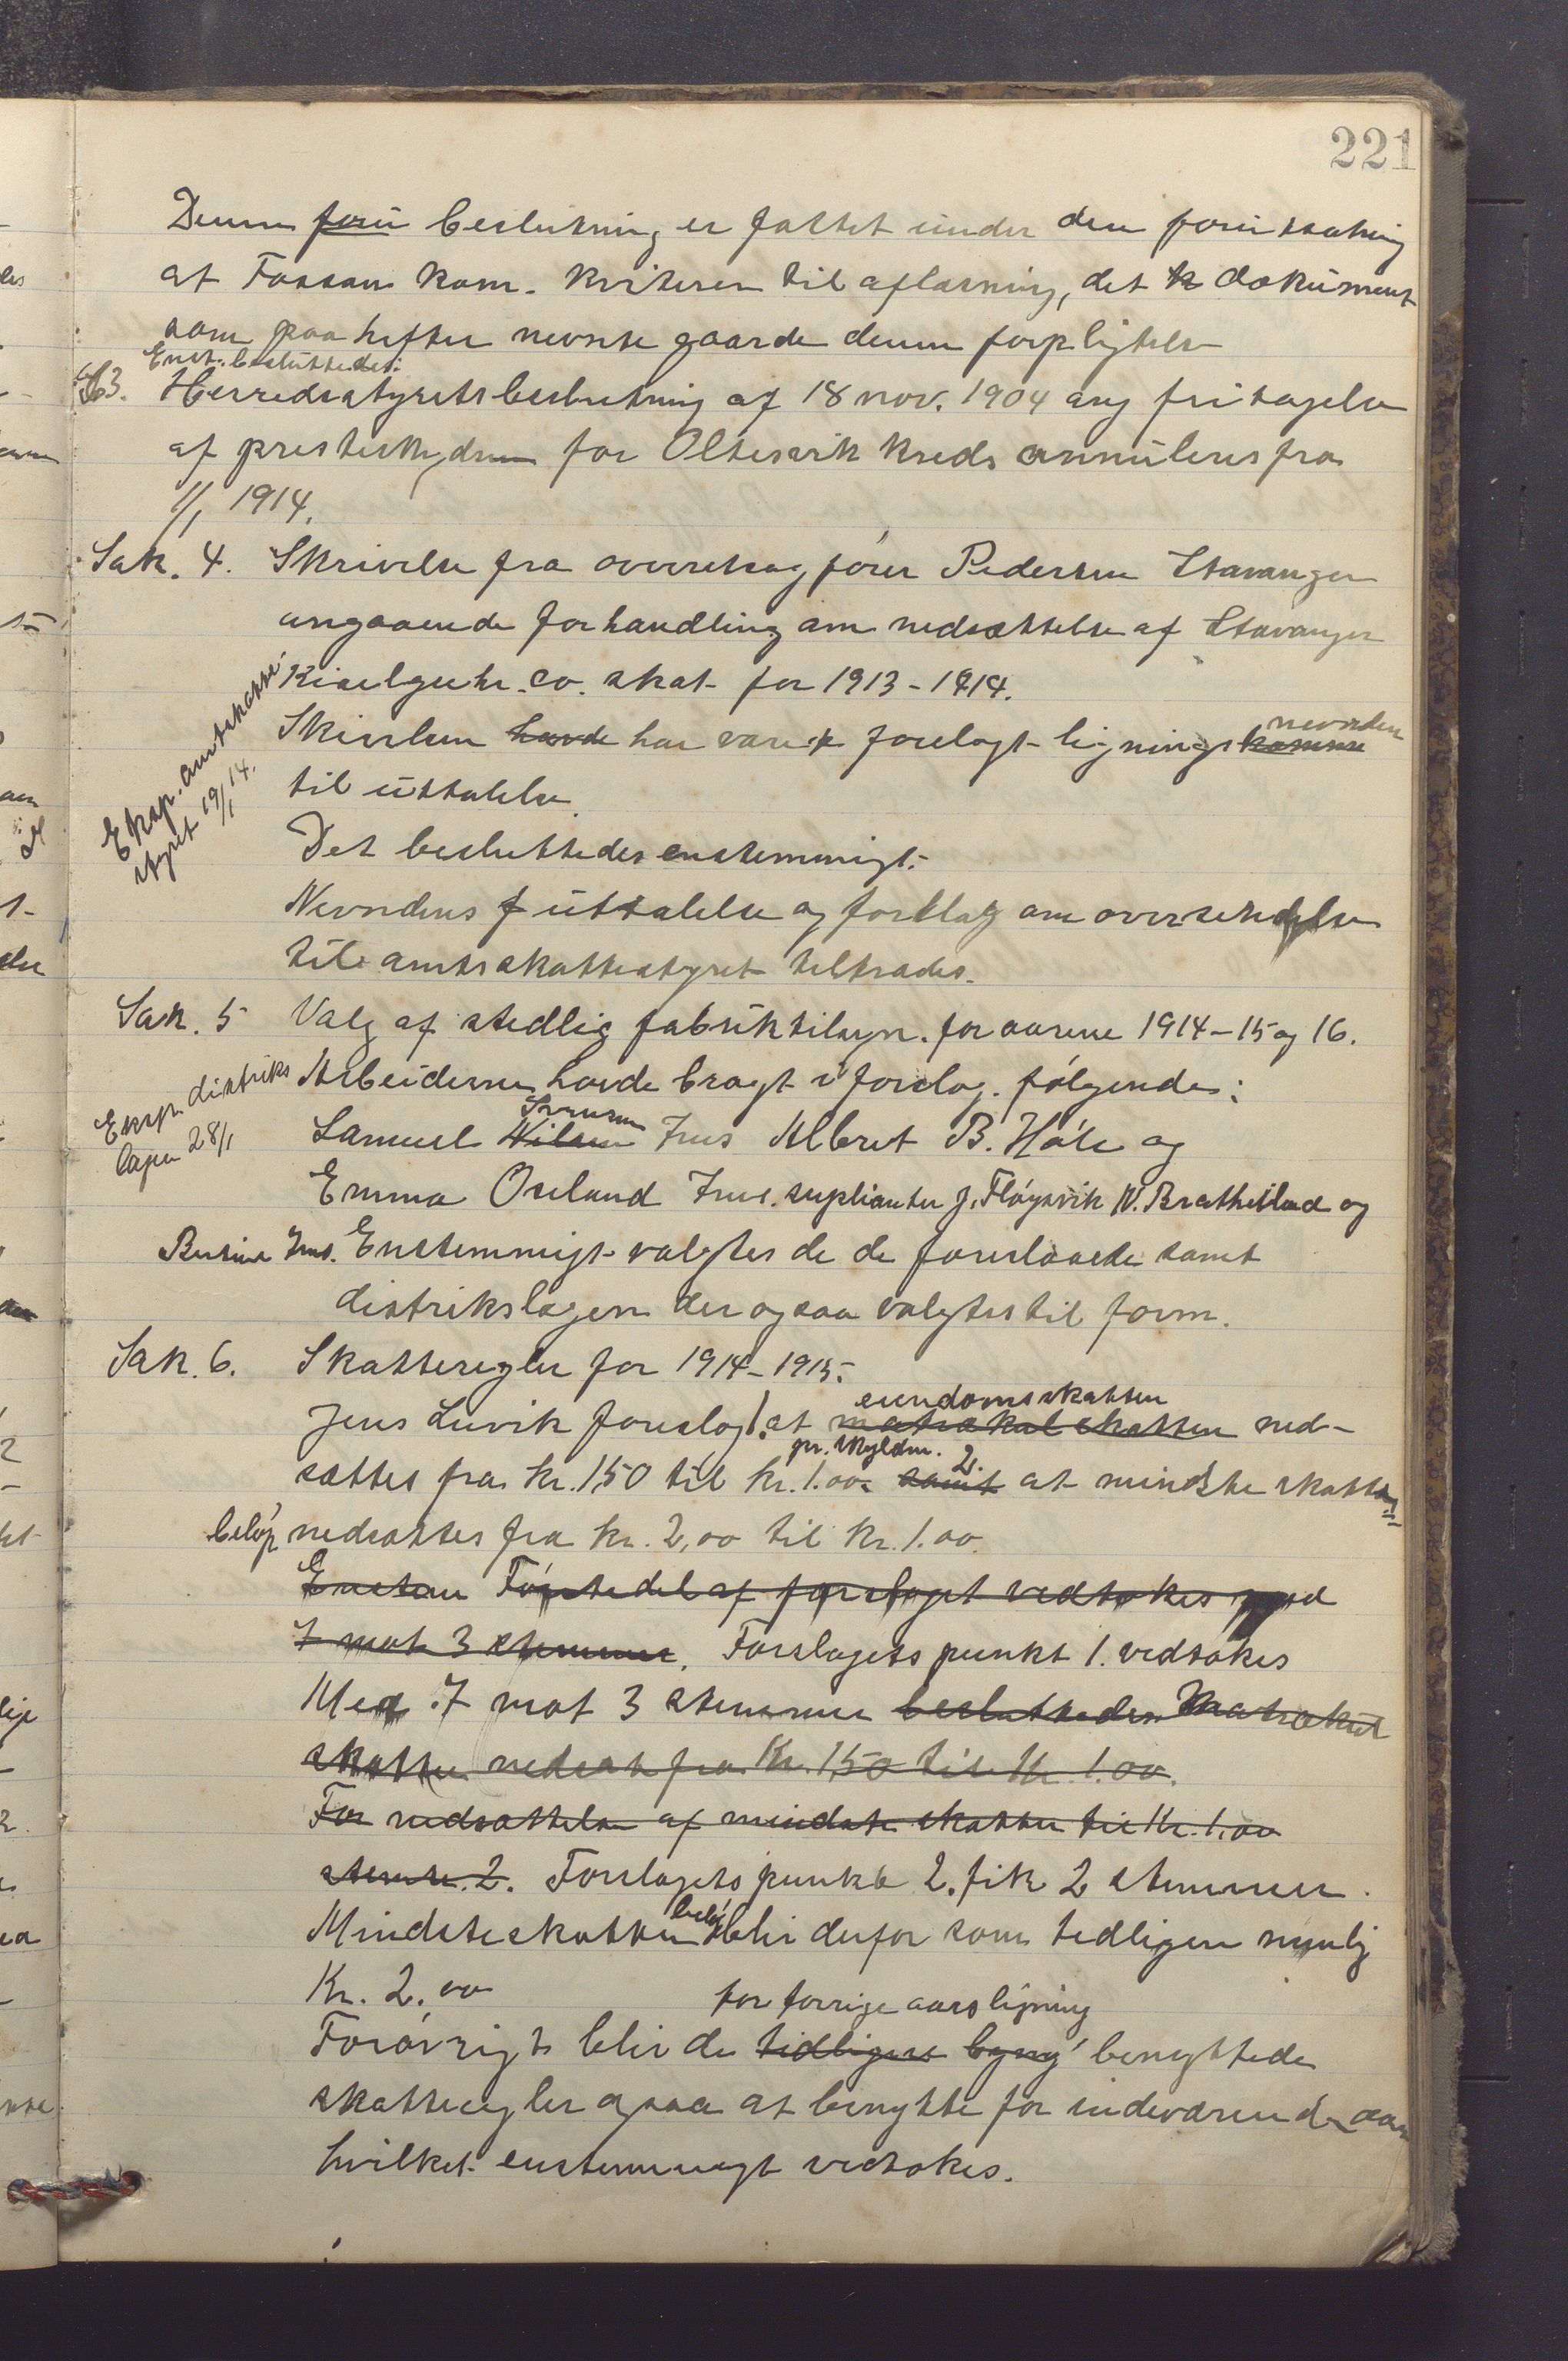 221
Denne foru beslutning er fattet under den forutsætning
at Fossan kom. kviterer til aflæsning, det k dokument
som paahefter nevnte gaarde denne forpligtelse
Enst. besluttedes:
S 3. Herredsstyrets beslutning af 18 nov. 1904 ang fritagelse
af presteskydsen for Oltesvik kreds annuleres fra
1/1 1914.
Sak. 4. Skrivelse fra overretssagfører Pedersen Stavanger
angaaende forhandling om nedsættelse af Stavanger
Kiselguhr. co. skat for 1913-1914.
Eksp. amtskatte
styret 19/1 14.
nevnden
Skrivelsen havde har været forelagt ligningskomme
til uttalelse.
Det besluttedes enstemmigt:
Nevndens f uttalelse og forslag om oversendelse
til amtsskattestyret tiltrædes.
Sak. 5 Valg af stedlig fabriktilsyn. for aarene 1914-15 og 16.
Eksp. distriks
lægen 28/1
Arbeiderne havde bragt i forslag. følgende:
Samuel Nilsen Ims Albret B. Høle og
Emma Oseland Ims. suplianter J. Fløysvik N. Brathetland og
Ims. Enstemmigt valgtes de de foreslaaede samt
distrikslægen der ogsaa valgtes til form.
Sak. 6. Skatteregler for 1914-1915:
eiendomsskatten
Jens Luvik foreslog 1. at matrskul skatten ned-
pr. skyldm. 2.
sættes fra kr. 1,50 til kr. 1.00 samt at mindste skatte
beløp nedsættes fra kr. 2,00 til kr. 1.00.
Enstem Første del af forslaget vedtokes med
7 mot 3 stemmer. Forslagets punkt 1. vedtokes
Med 7 mot 3 stemmer besluttedes Matrskul
skatten nedsat fra Kr. 1,50 til Kr 1.00.
For nedsættelse af mindste skatten til Kr. 1.00
stemte 2. Forslagets punkt 2. fik 2 stemmer.
beløp
Mindsteskatten blir derfor som tedligere nemlig
Kr. 2.00
for forrige aars ligning
Forøvrigt blir de tidligere benyttede
skatteregler ogsaa at benytte for indeværende aar
hvilket enstemmigt vedtokes.